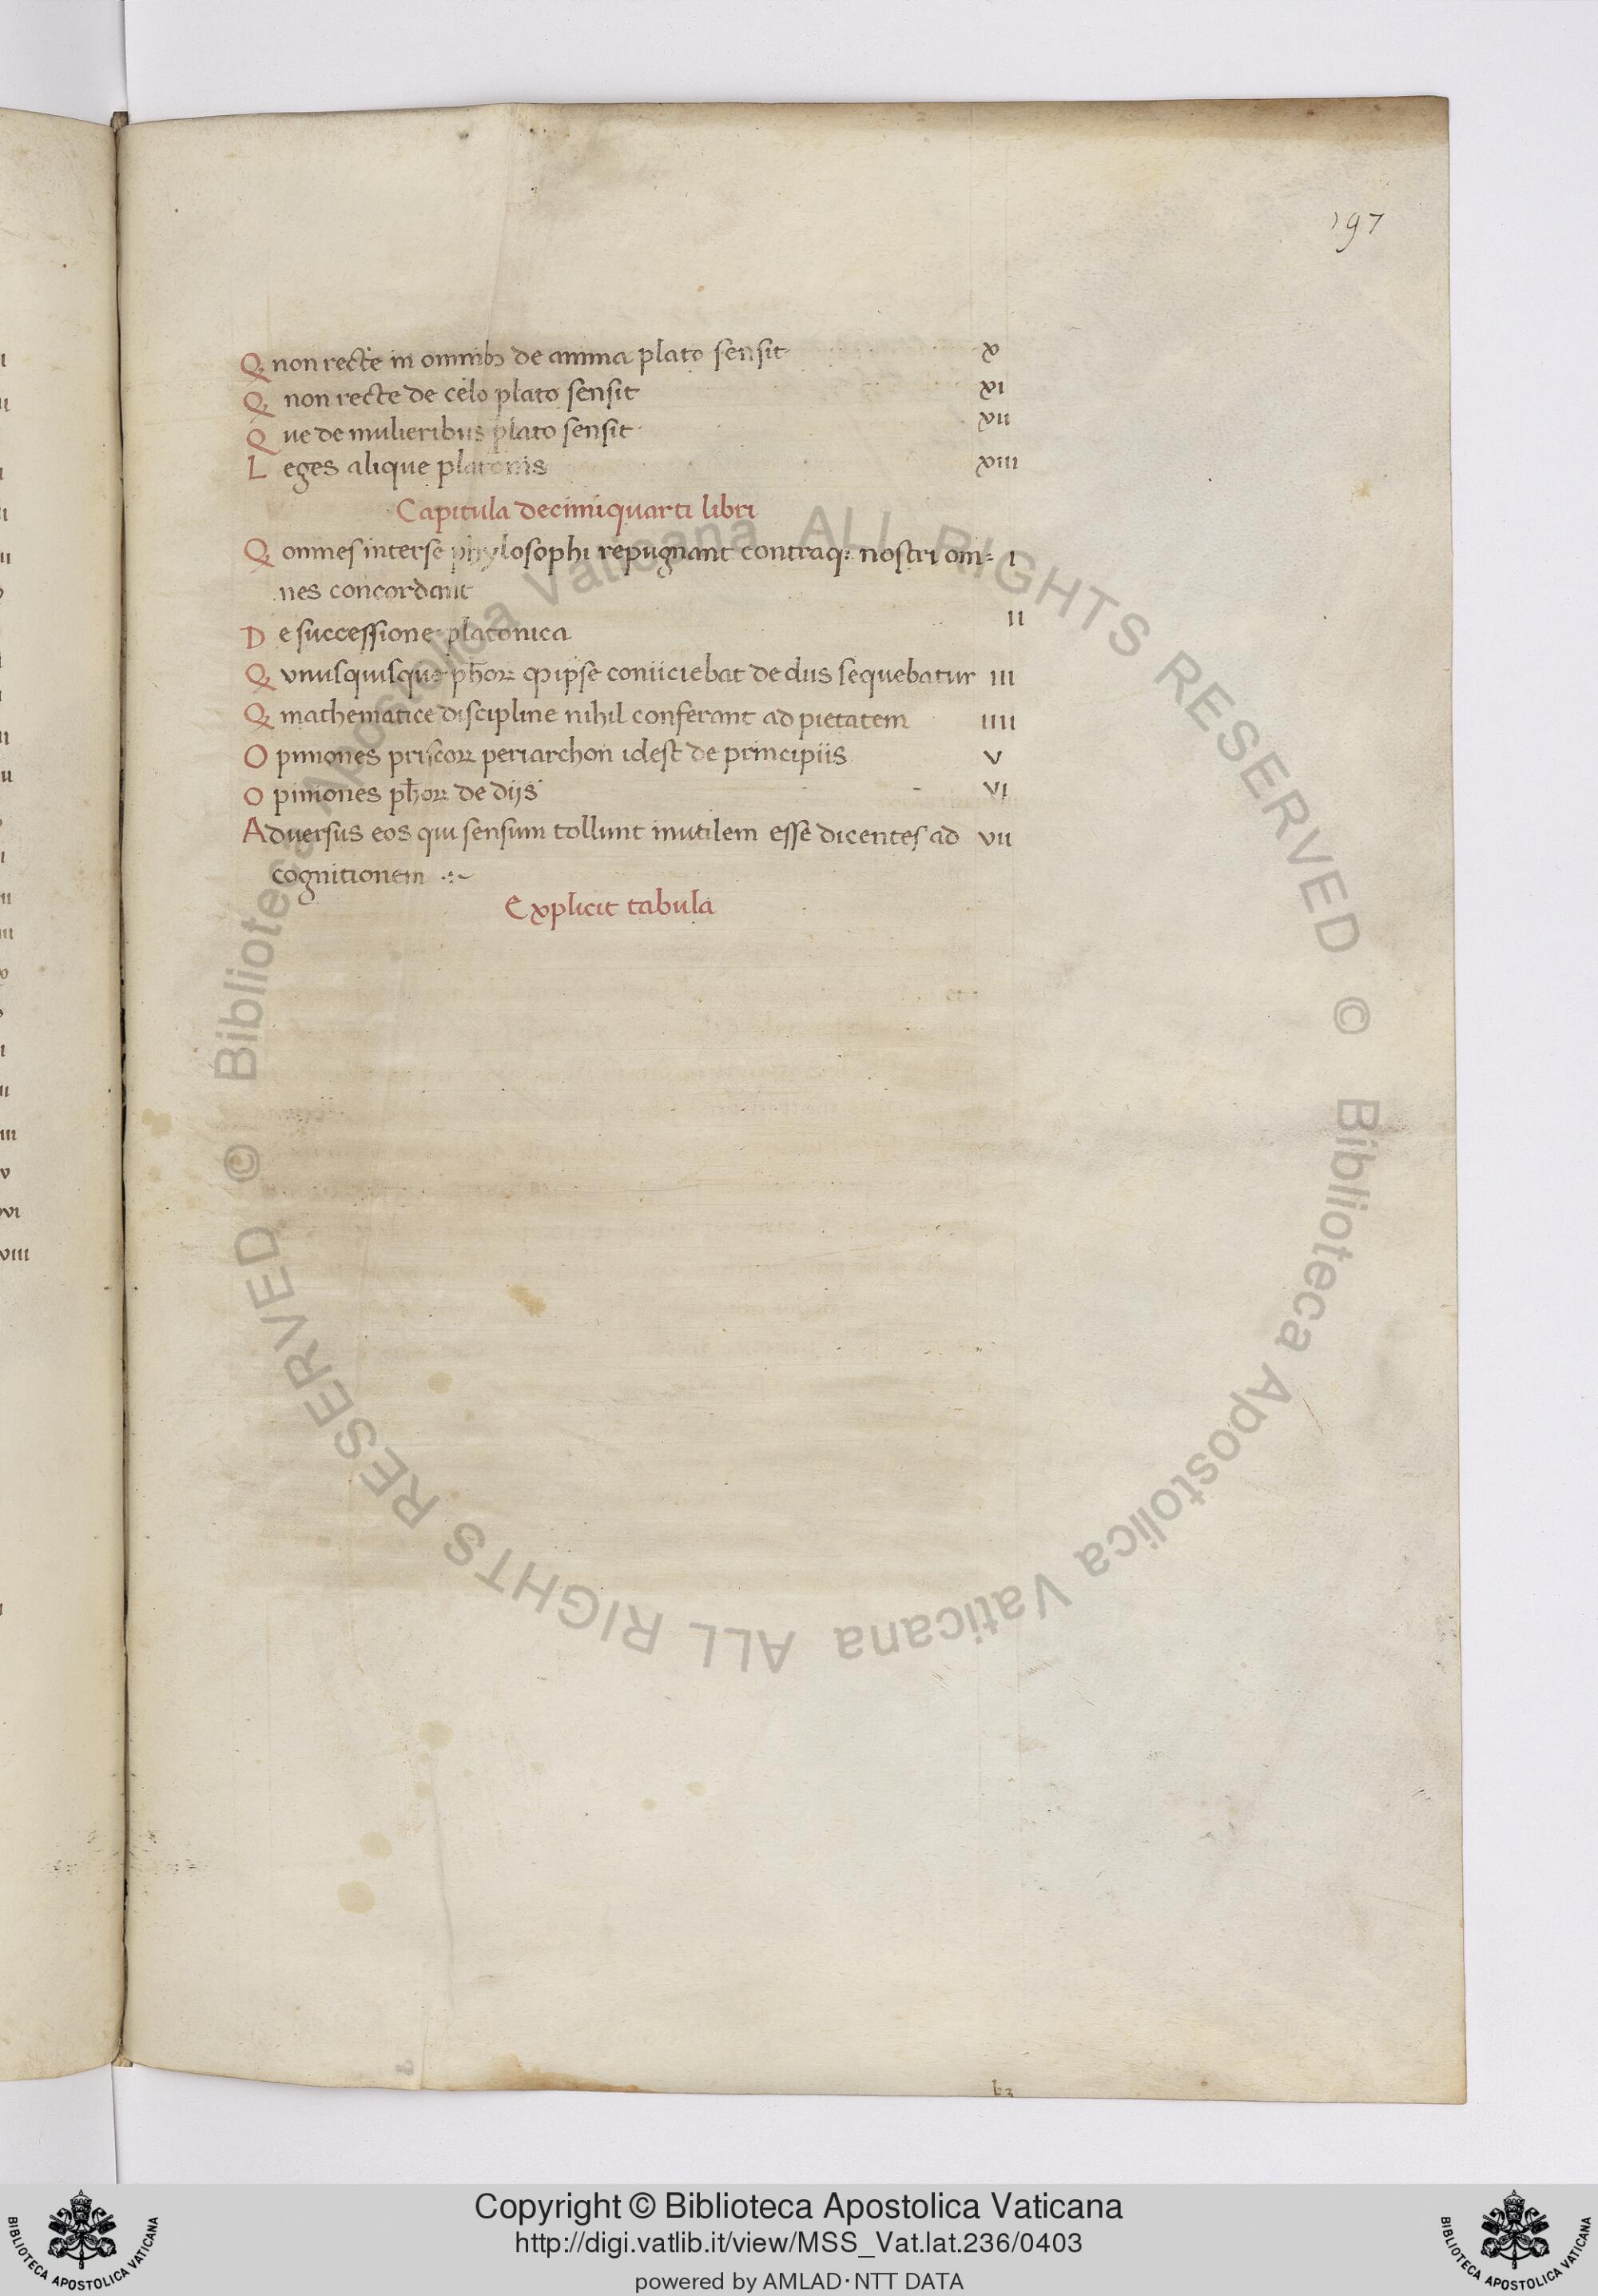 197
Q non recte in omnibꝫ de anima plato sensit x
Q non recte de celo plato sensit xi
Que de mulieribus plato sensit xii
Leges alique platonis xiii
Capitula decimiquarti libri
Q omnes inter se phylosophi repugnant contraq: nostri om= i
nes concordant
De successione platonica ii
Q vnusquisque ph̄oꝝ ꝙ ipse coniiciebat de diis sequebatur iii
Q mathematice discipline nihil conferant ad pietatem iiii
Opiniones priscoꝝ periarchon idest de principiis v
Opiniones ph̄oꝝ de dijs vi
Adversus eos qui sensum tollunt inutilem esse dicentes ad vii
cognitionem
Explicit tabula
b3
© Biblioteca Apostolica Vaticana ALL RIGHTS RESERVED © Biblioteca Apostolica Vaticana ALL RIGHTS RESERVED
Copyright © Biblioteca Apostolica Vaticana
http://digi.vatlib.it/view/MSS_Vat.lat.236/0403
powered by AMLAD·NTT DATA
BIBLIOTECA APOSTOLICA VATICANA
BIBLIOTECA APOSTOLICA VATICANA